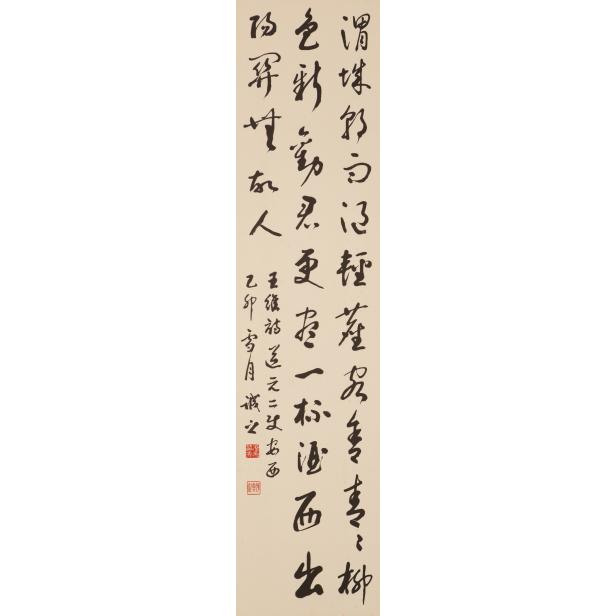 渭城朝雨浥輕塵客舍青〻柳
色新勸君更盡一杯酒西出
陽關無故人
王維詩送元二使安西
乙卯雪月誠之